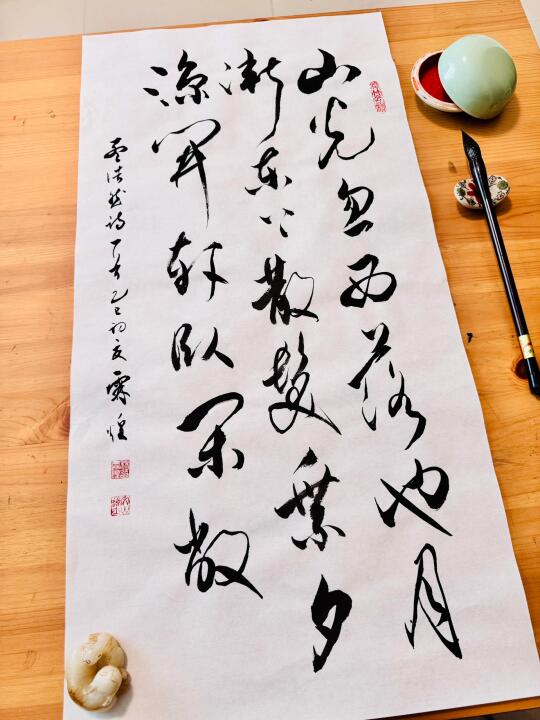 山光忽西落池月
漸東上散髮乘夕
涼開軒臥閑敞
孟浩然詩一首乙巳初夏